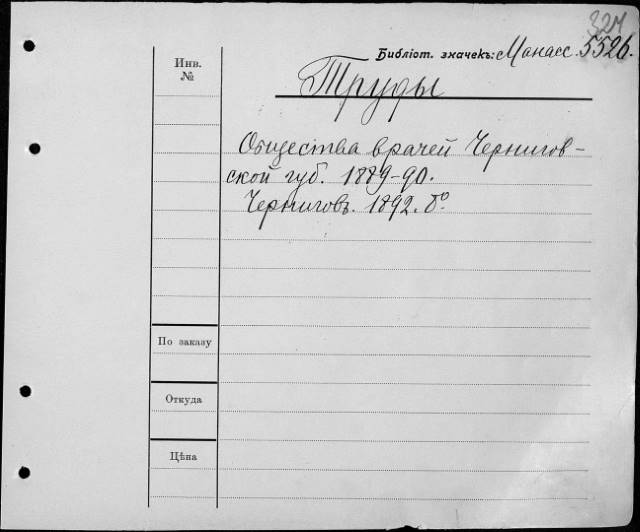 327
Библіот. значекъ: Манасс. 5526.
Инв.
№
Труды
Общества врачей Чернигов-
ской губ. 1889-90.
Черниговъ. 1892. 8º
По заказу
Откуда
Цѣна